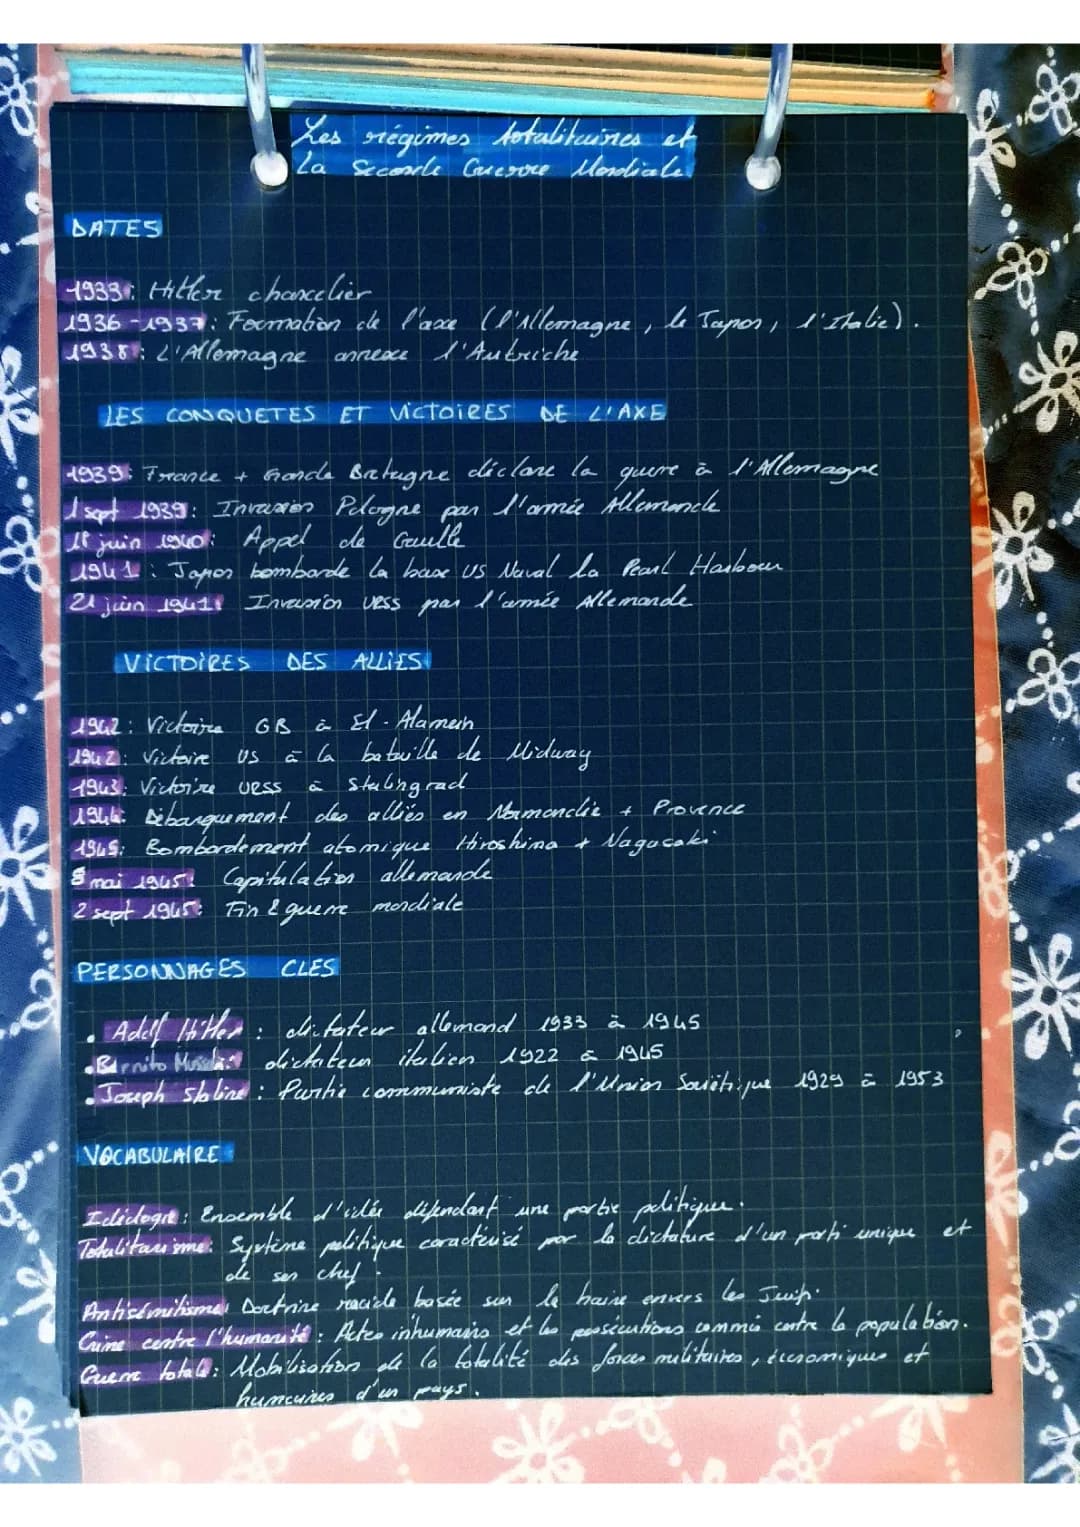 Les régimes totalitaires et
La Seconde Guerre Mondiale
DATES
1933: Hitler chancelier
1936-1937: Formation de l'axe (l'Allemagne, le Japon, l'Italie).
1938: L'Allemagne annexe l'Autriche
LES CONQUETES ET VICTOIRES DE L'AXE
1939: France + Grande Bretagne déclare la guerre à l'Allemagne
1 sept 1939: Invasion Pologne par l'armée Allemande
18 juin 1940: Appel de Gaulle
1941: Japon bombarde la base US Naval la Pearl Harbour
21 juin 1941: Invasion URSS par l'armée Allemande
VICTOIRES DES ALLIES
1942: Victoire GB à El-Alamein
1942: Victoire US à la bataille de Midway
1943: Victoire URSS à Stalingrad
1944: Débarquement des alliés en Normandie + Provence
1945: Bombardement atomique Hiroshima + Nagasaki
8 mai 1945: Capitulation allemande
2 sept 1945: Fin 2 guerre mondiale
PERSONNAGES CLES
• Adolf Hitler : dictateur allemand 1933 à 1945
• Bennito Mussolini dictateur italien 1922 à 1945
• Joseph Staline : Partie communiste de l'Union Soviétique 1929 à 1953
VOCABULAIRE
Idéologie : Ensemble d'idée défendant une partie politique.
Totalitarisme: Système politique caractérisé par la dictature d'un parti unique et
de son chef.
Antisémitisme: Doctrine raciale basée sur la haine envers les Juifs.
Crime contre l'humanité : Actes inhumains et les persécutions commis contre la population.
Guerre totale: Mobilisation de la totalité des forces militaires, économiques et
humaines d'un pays.